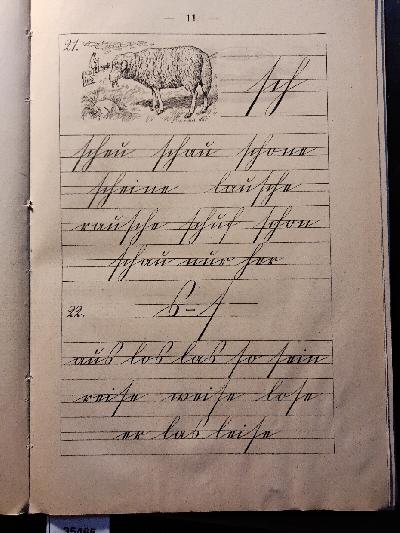 — 11 —
21.
sch
scheu schau schone
scheine lausche
rausche schuf schon
schau nur her
22. s - ſ
aus los las so sein
reise weise lose
er las leise
35465